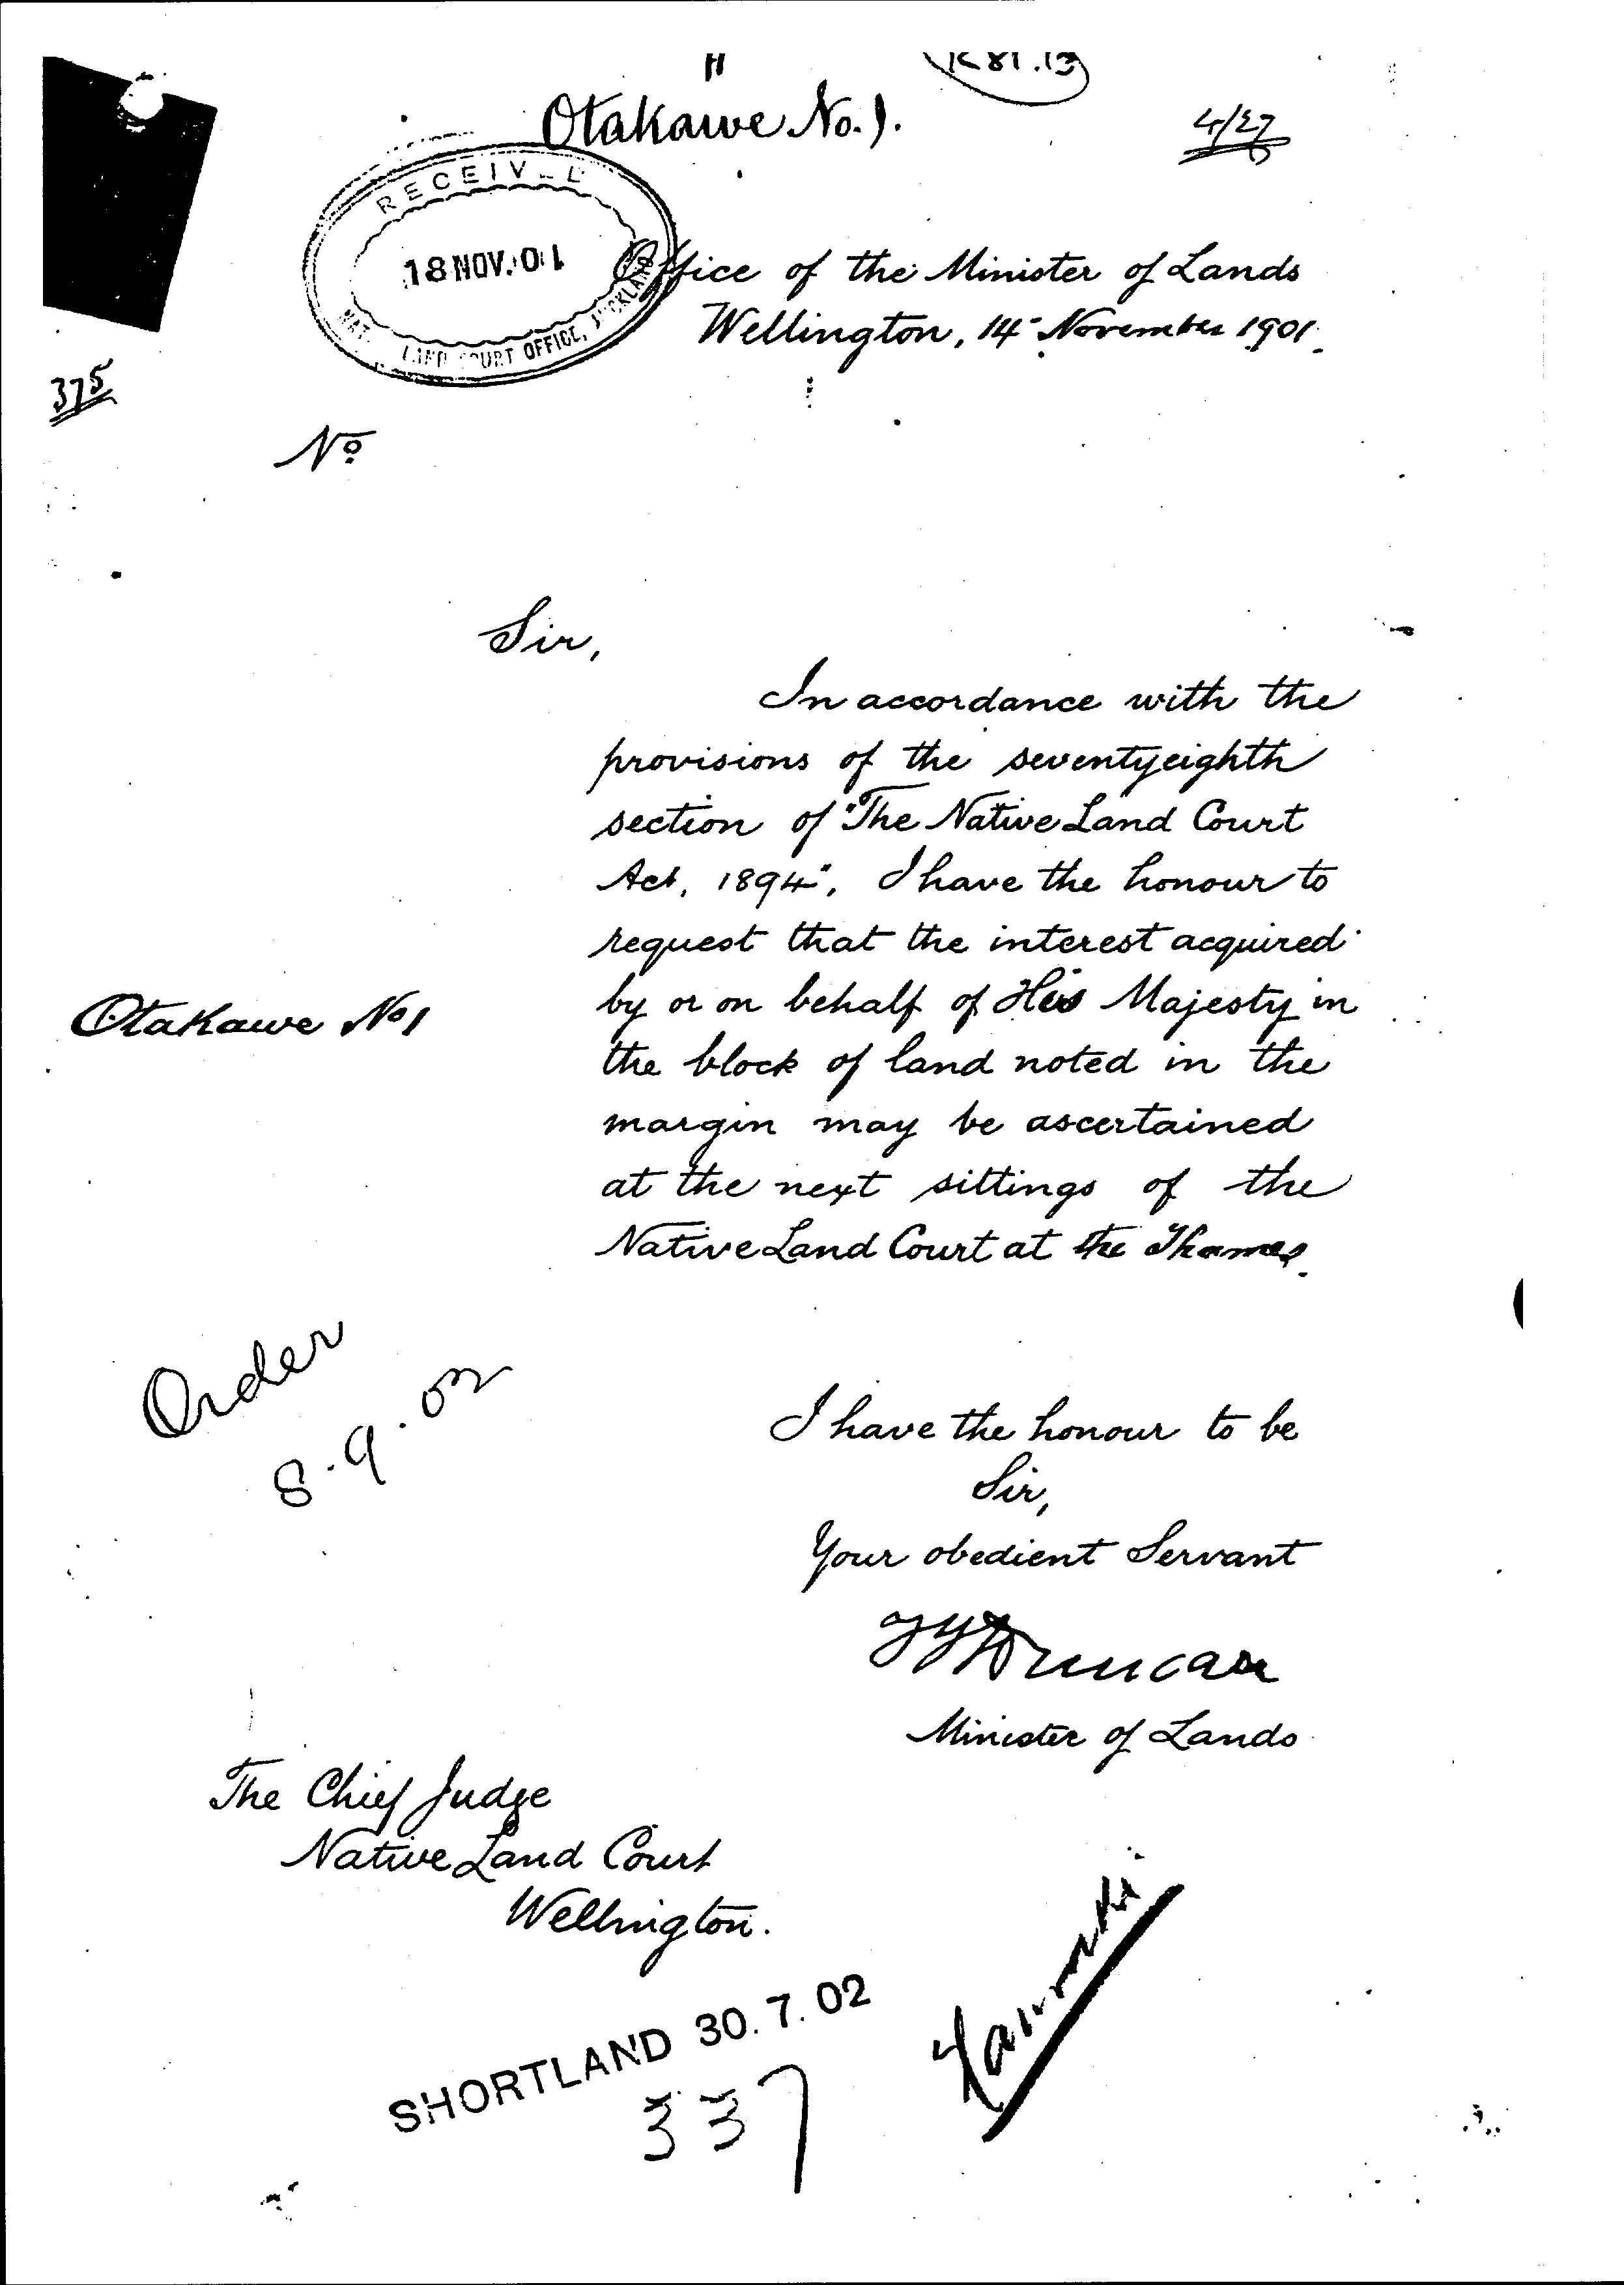 11
K 81.13
Otakawe No. 1.
4/27
RECEIV_ED
18 NOV. 01
LAND COURT OFFICE, AUCKLAND
Office of the Minister of Lands
Wellington, 14 November 1901.
375
No
Sir,
In accordance with the
provisions of the seventyeighth
section of "The Native Land Court
Act, 1894", I have the honour to
request that the interest acquired
by or on behalf of His Majesty in
Otakawe No 1
the block of land noted in the
margin may be ascertained
at the next sittings of the
Native Land Court at the Thames.
Order
8.9.02
I have the honour to be
Sir,
Your obedient Servant
TYDuncan
Minister of Lands
The Chief Judge
Native Land Court
Wellington.
SHORTLAND 30.7.02
337